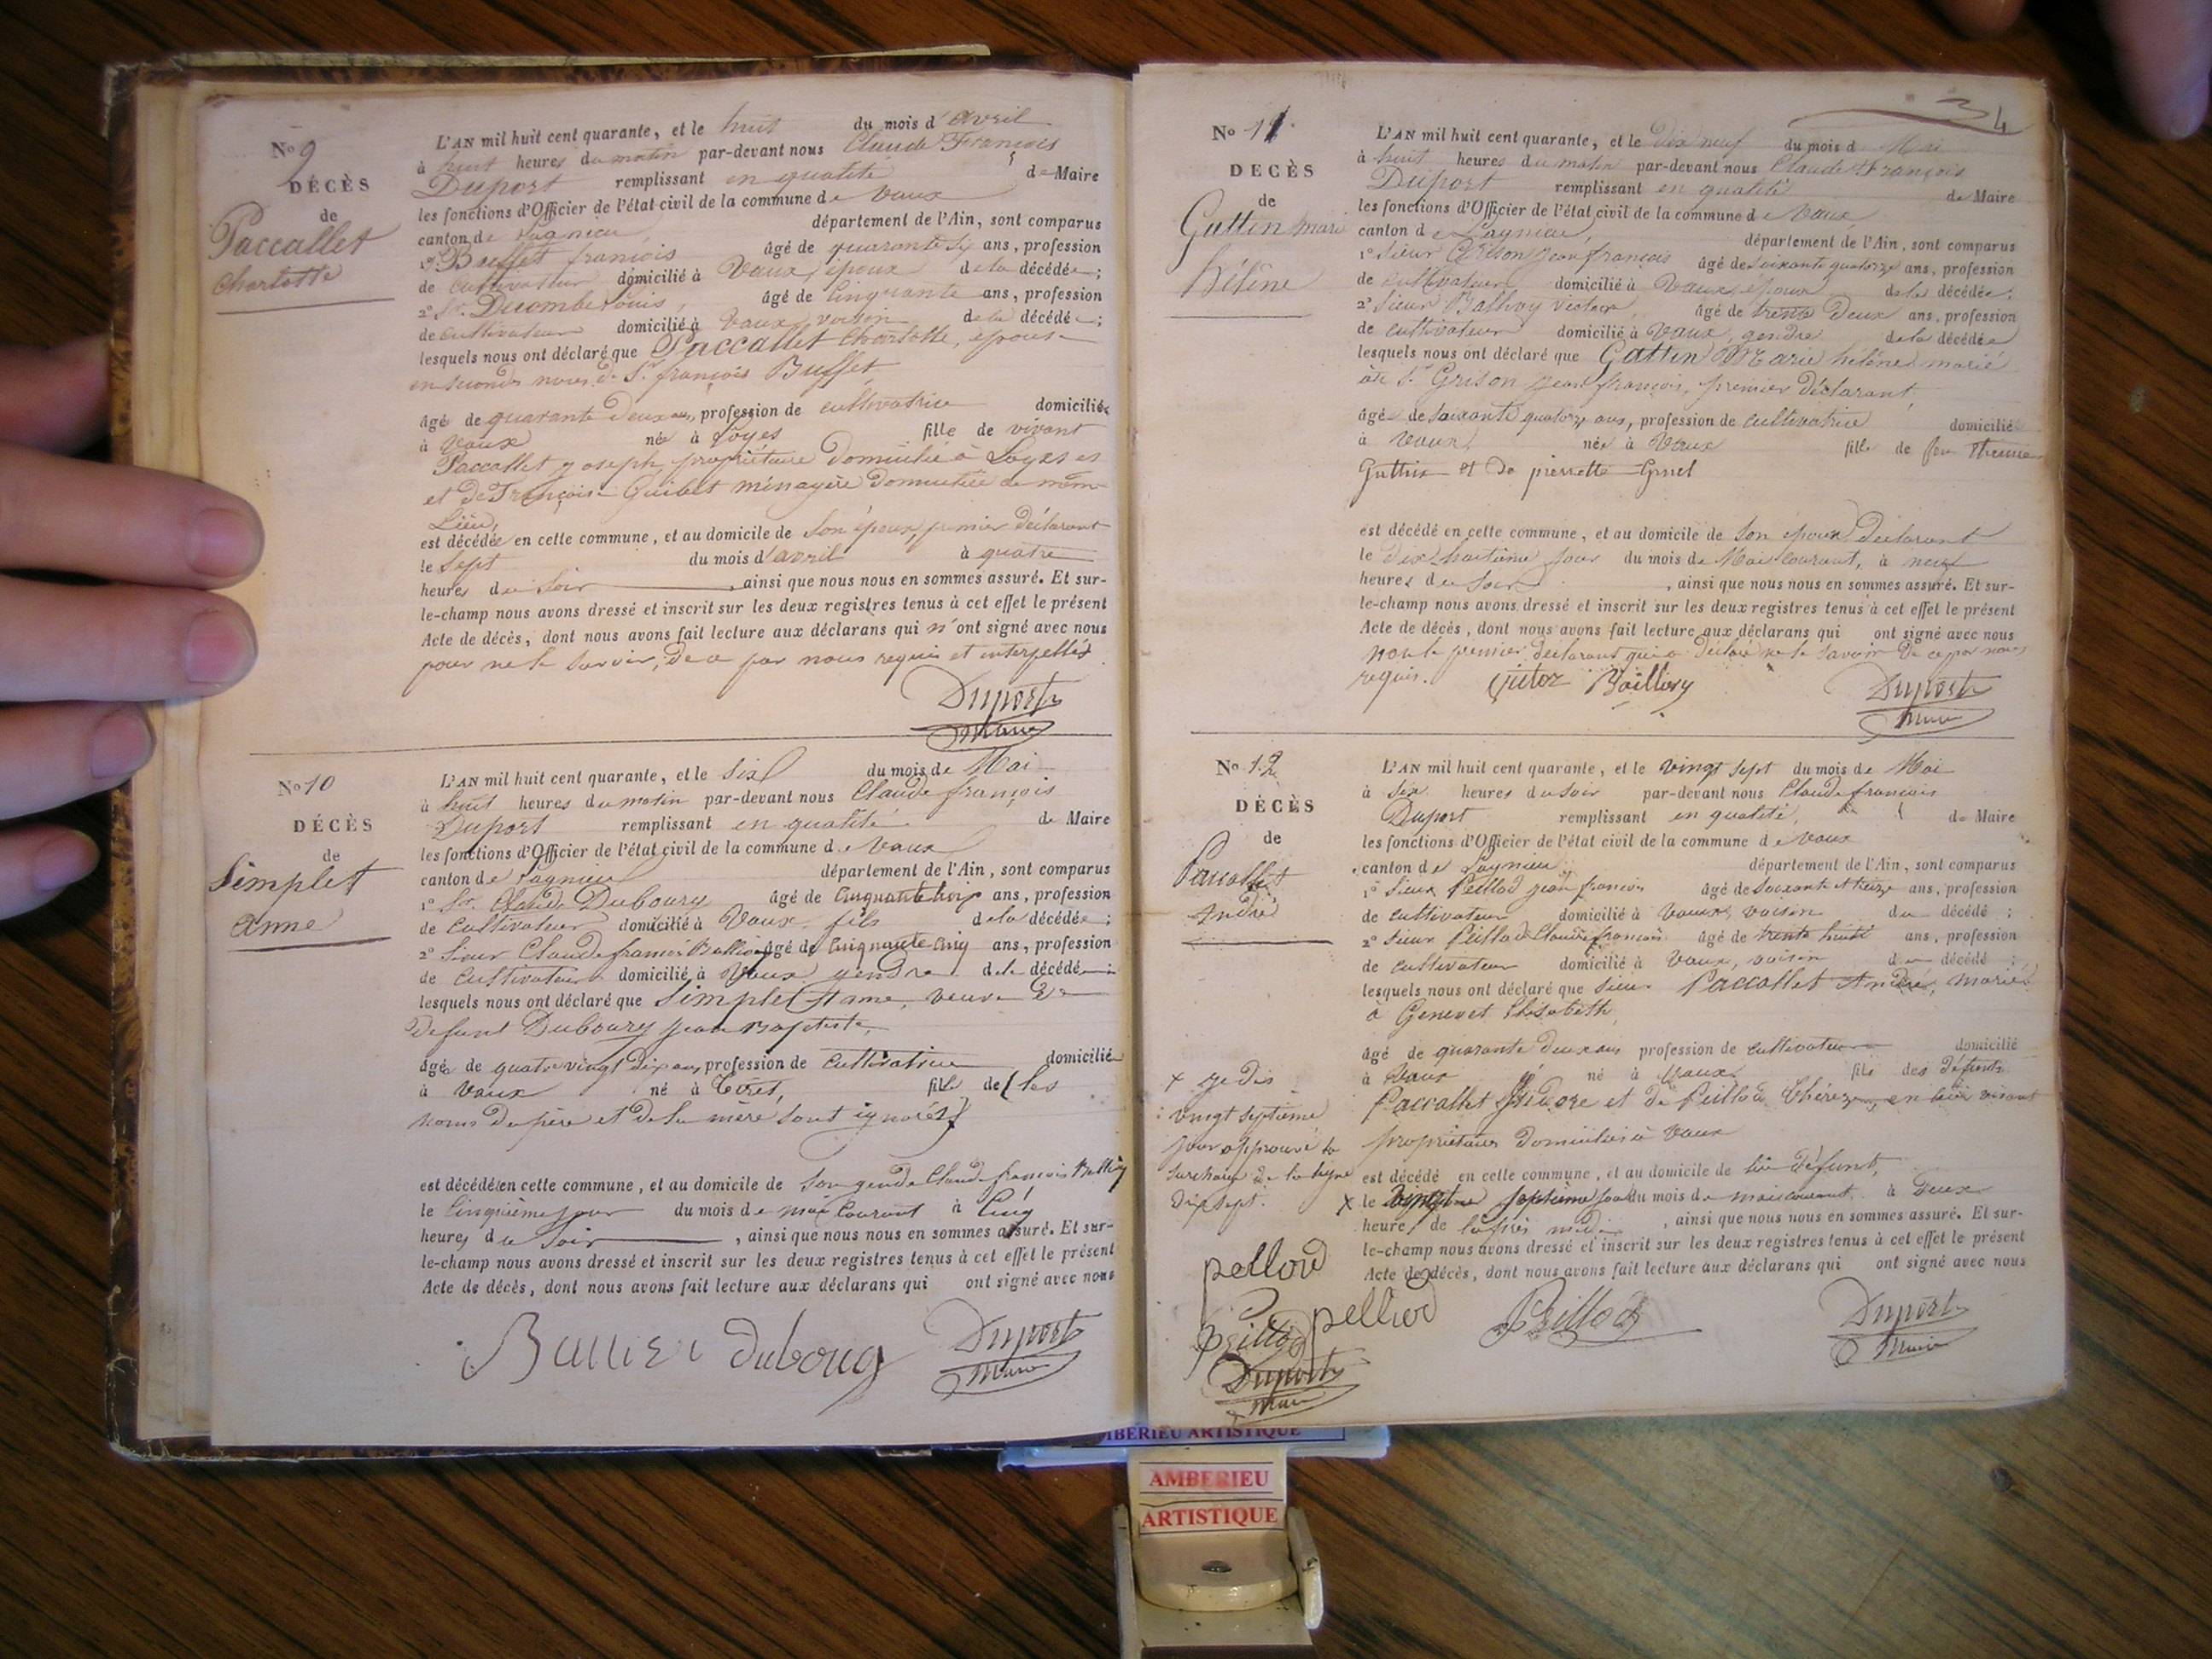 No 9
DÉCÈS
de
Paccallet
Charlotte
L'AN mil huit cent quarante, et le huit du mois d'avril
à huit heures du matin par-devant nous Claude François
Duport remplissant en qualité de Maire
les fonctions d'Officier de l'état civil de la commune de Vaux
canton de Lagnieu, département de l'Ain, sont comparus
1° Sr Buffet françois âgé de quarante six ans, profession
de cultivateur domicilié à Vaux, époux de la décédée;
2° Sr. Decombe Louis, âgé de Cinquante ans, profession
de cultivateur domicilié à Vaux voisin de la décédée;
lesquels nous ont déclaré que Paccallet Charlotte, épouse
en secondes noces de Sr. françois Buffet,
âgée de quarante deux ans, profession de cultivatrice domiciliée
à Vaux née à Loyes fille de vivant
Paccallet joseph, propriétaire domicilié à Loyes et
et de Françoise Guibet ménagère domiciliée de même
Lieu,
est décédée en cette commune, et au domicile de son époux, premier déclarant
le Sept du mois d'avril à quatre
heures du soir, ainsi que nous nous en sommes assuré. Et sur-
le-champ nous avons dressé et inscrit sur les deux registres tenus à cet effet le présent
Acte de décès, dont nous avons fait lecture aux déclarans qui n'ont signé avec nous
pour ne le savoir, de ce par nous requis et interpellés
Duport
Maire
No 10
DÉCÈS
de
Simplet
Anne
L'AN mil huit cent quarante, et le six du mois de Mai
à huit heures du matin par-devant nous Claude françois
Duport remplissant en qualité de Maire
les fonctions d'Officier de l'état civil de la commune de Vaux
canton de Lagnieu département de l'Ain, sont comparus
1° Sr. Claude Dubourg âgé de Cinquante trois ans, profession
de Cultivateur domicilié à Vaux, fils de la décédée;
2° Sieur Claude françois âgé de Cinquante Cinq ans, profession
de Cultivateur domicilié à Vaux gendre de la décédée;
lesquels nous ont déclaré que Simplet Anne, veuve de
défunt Dubourg jean Baptiste,
âgée de quatre vingt dix ans, profession de Cultivatrice domiciliée
à Vaux né à fille de (les
noms du père et de la mère sont ignorés)
est décédée en cette commune, et au domicile de son gendre Claude françois
le Cinquième jour du mois de mai Courant à Cinq
heures du soir, ainsi que nous nous en sommes assuré. Et sur-
le-champ nous avons dressé et inscrit sur les deux registres tenus à cet effet le présent
Acte de décès, dont nous avons fait lecture aux déclarans qui ont signé avec nous
duboug Duport
Maire
34
No 11.
DECÈS
de
Guttin marie
hélène
L'AN mil huit cent quarante, et le dix neuf du mois d Mai
à huit heures du matin par-devant nous Claude François
Duport remplissant en qualité de Maire
les fonctions d'Officier de l'état civil de la commune de Vaux
canton de Lagnieu, département de l'Ain, sont comparus
1° Sieur Grison jean françois âgé de soixante quatorze ans, profession
de cultivateur domicilié à Vaux, époux de la décédée;
2° Sieur victor, âgé de trente deux ans, profession
de cultivateur domicilié à Vaux, gendre de la décédée
lesquels nous ont déclaré que Guttin Marie hélène mariée
à Sr. Grison jean françois, premier déclarant,
âgée de soixante quatorze ans, profession de cultivatrice domicilié
à Vaux, née à Vaux fille de feu
Guttin et de pierrette
est décédé en cette commune, et au domicile de son époux déclarant
le dix huitième jour du mois de Mai Courant, à neuf
heures du soir, ainsi que nous nous en sommes assuré. Et sur-
le-champ nous avons dressé et inscrit sur les deux registres tenus à cet effet le présent
Acte de décès, dont nous avons fait lecture aux déclarans qui ont signé avec nous
non le premier déclarant qui a déclaré ne le savoir De ce par nous
requis. Duport
Maire
No 12
DÉCÈS
de
Paccallet
André
L'AN mil huit cent quarante, et le vingt sept du mois de Mai
à six heures du soir par-devant nous Claude françois
Duport remplissant en qualité, de Maire
les fonctions d'Officier de l'état civil de la commune de Vaux
canton de Lagnieu département de l'Ain, sont comparus
1° Sieur Peillod jean françois âgé de soixante et treize ans, profession
de cultivateur domicilié à Vaux, voisin du décédé;
2° Sieur Peillod Claude françois âgé de trente huit ans, profession
de cultivateur domicilié à Vaux, voisin du décédé;
lesquels nous ont déclaré que Sieur Paccallet André, marié
à Genevet Elisabeth,
âgé de quarante deux ans profession de cultivateur domicilié
à Vaux né à Vaux fils des défunts
Paccallet Isidore et de Peillod Thérèze, en leur vivant
propriétaires domiciliés à Vaux
est décédé en cette commune, et au domicile de lui défunt,
x le vingt septième jour du mois de mai courant à Deux
heures de laprès midi, ainsi que nous nous en sommes assuré. Et sur-
le-champ nous avons dressé et inscrit sur les deux registres tenus à cet effet le présent
Acte de décès, dont nous avons fait lecture aux déclarans qui ont signé avec nous
x je dis
vingt septième
jour approuvé la
surcharge de la ligne
dix sept.
pelloud
pelliod
Peillod
Peillod
Duport
Maire
Duport
Maire
AMBERIEU ARTISTIQUE
AMBERIEU
ARTISTIQUE